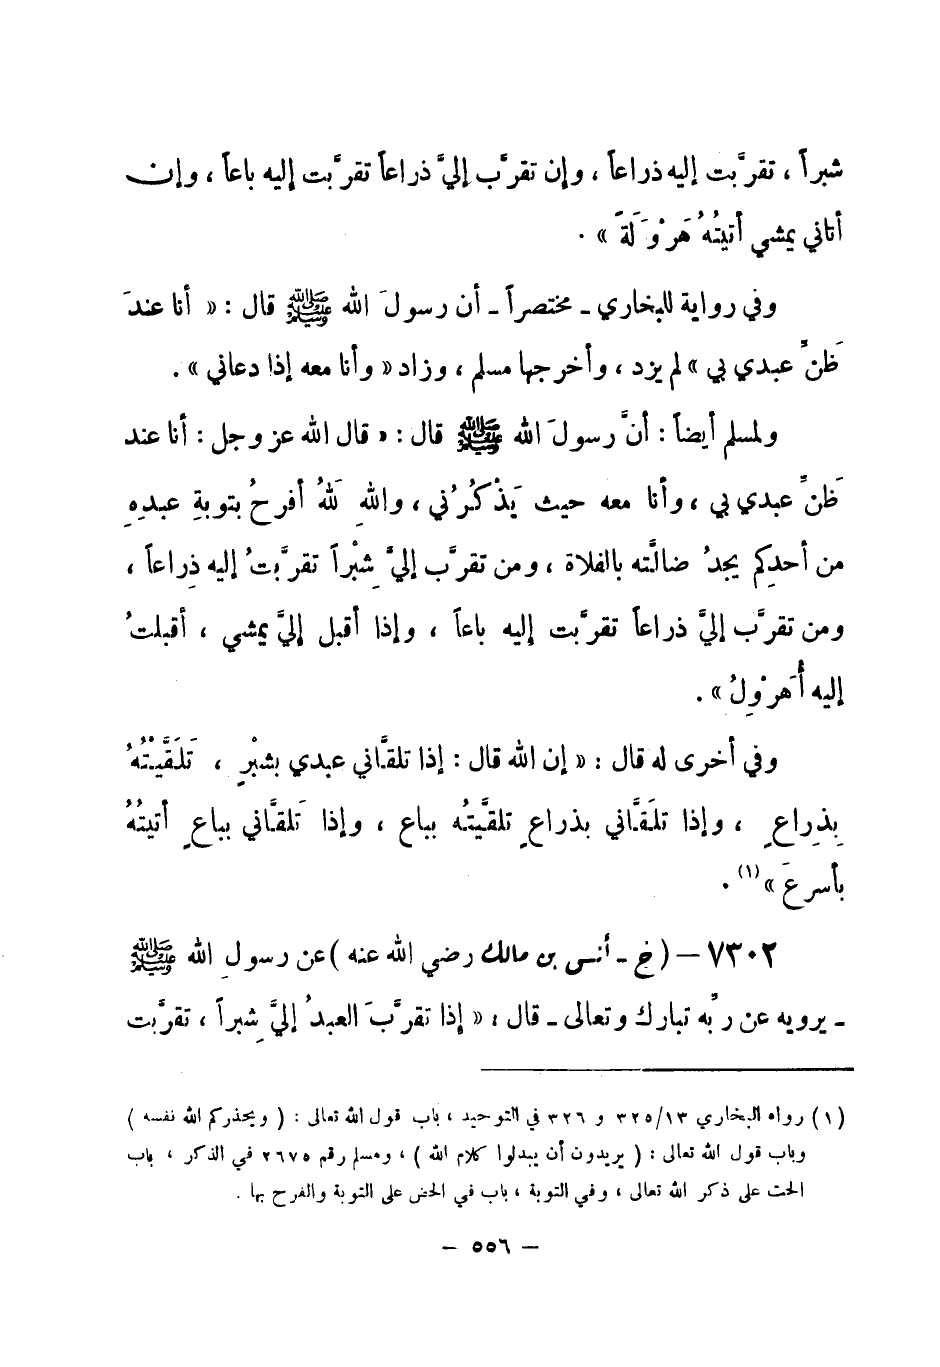 شبراً ، تقرَّبت إليه ذراعاً ، وإن تقرَّب إليَّ ذراعاً تقرَّبت إليه باعاً ، وإن
أتاني يمشي أتيتُهُ هَرْوَلَةً » .
وفي رواية للبخاري ـ مختصراً ـ أن رسولَ الله ﷺ قال : « أنا عندَ
ظَنِّ عبدي بي » لم يزد ، وأخرجها مسلم ، وزاد « وأنا معه إذا دعاني » .
ولمسلم أيضاً : أنَّ رسولَ الله ﷺ قال : « قال الله عز وجل : أنا عند
ظَنِّ عبدي بي ، وأنا معه حيث يَذْكُرُني ، واللهِ لَلهُ أفرحُ بتوبةِ عبدِهِ
من أحدِكم يجدُ ضالَّته بالفلاة ، ومن تقرَّب إليَّ شِبْراً تقرَّبتُ إليه ذِراعاً ،
ومن تقرَّب إليَّ ذراعاً تقرَّبت إليه باعاً ، وإذا أقبل إليَّ يمشي ، أقبلتُ
إليه أُهَرْوِلُ » .
وفي أخرى له قال : « إن الله قال : إذا تلقَّاني عبدي بشبْرٍ ، تَلَقَّيْتُهُ
بِذِراعٍ ، وإذا تلَقَّاني بذراعٍ تلقَّيتُه بباع ، وإذا تَلقَّاني بباعٍ أتيتُهُ
بأسرعَ » (١) .
٧٣٠٢ – ( خ ـ أنس بن مالك رضي الله عنه ) عن رسولِ الله ﷺ
ـ يرويه عن ربِّه تبارك وتعالى ـ قال : « إذا تقرَّبَ العبدُ إليَّ شِبراً ، تقرَّبت
(١) رواه البخاري ١٣/٣٢٥ و ٣٢٦ في التوحيد ، باب قول الله تعالى : ( ويحذركم الله نفسه )
وباب قول الله تعالى : ( يريدون أن يبدلوا كلام الله ) ، ومسلم رقم ٢٦٧٥ في الذكر ، باب
الحث على ذكر الله تعالى ، وفي التوبة ، باب في الحض على التوبة والفرح بها .
– ٥٥٦ –